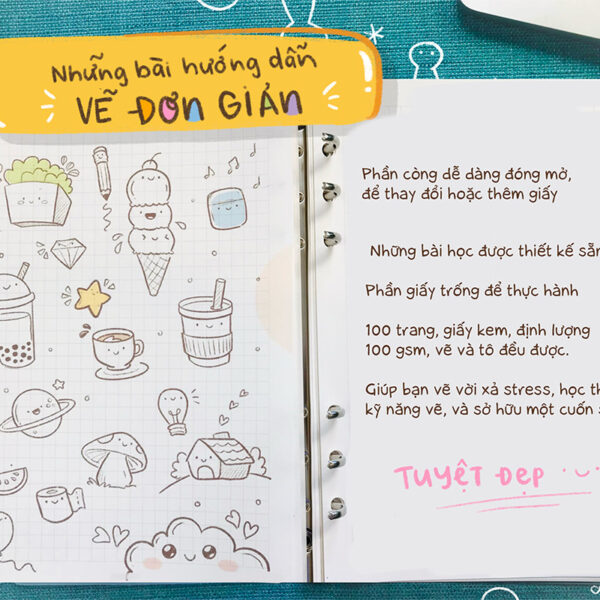 Những bài hướng dẫn
VẼ ĐƠN GIẢN
Phần còng dễ dàng đóng mở,
để thay đổi hoặc thêm giấy
Những bài học được thiết kế sẵn
Phần giấy trống để thực hành
100 trang, giấy kem, định lượng
100 gsm, vẽ và tô đều được.
Giúp bạn vẽ vời xả stress, học
kỹ năng vẽ, và sở hữu một cuốn
TUYỆT ĐẸP